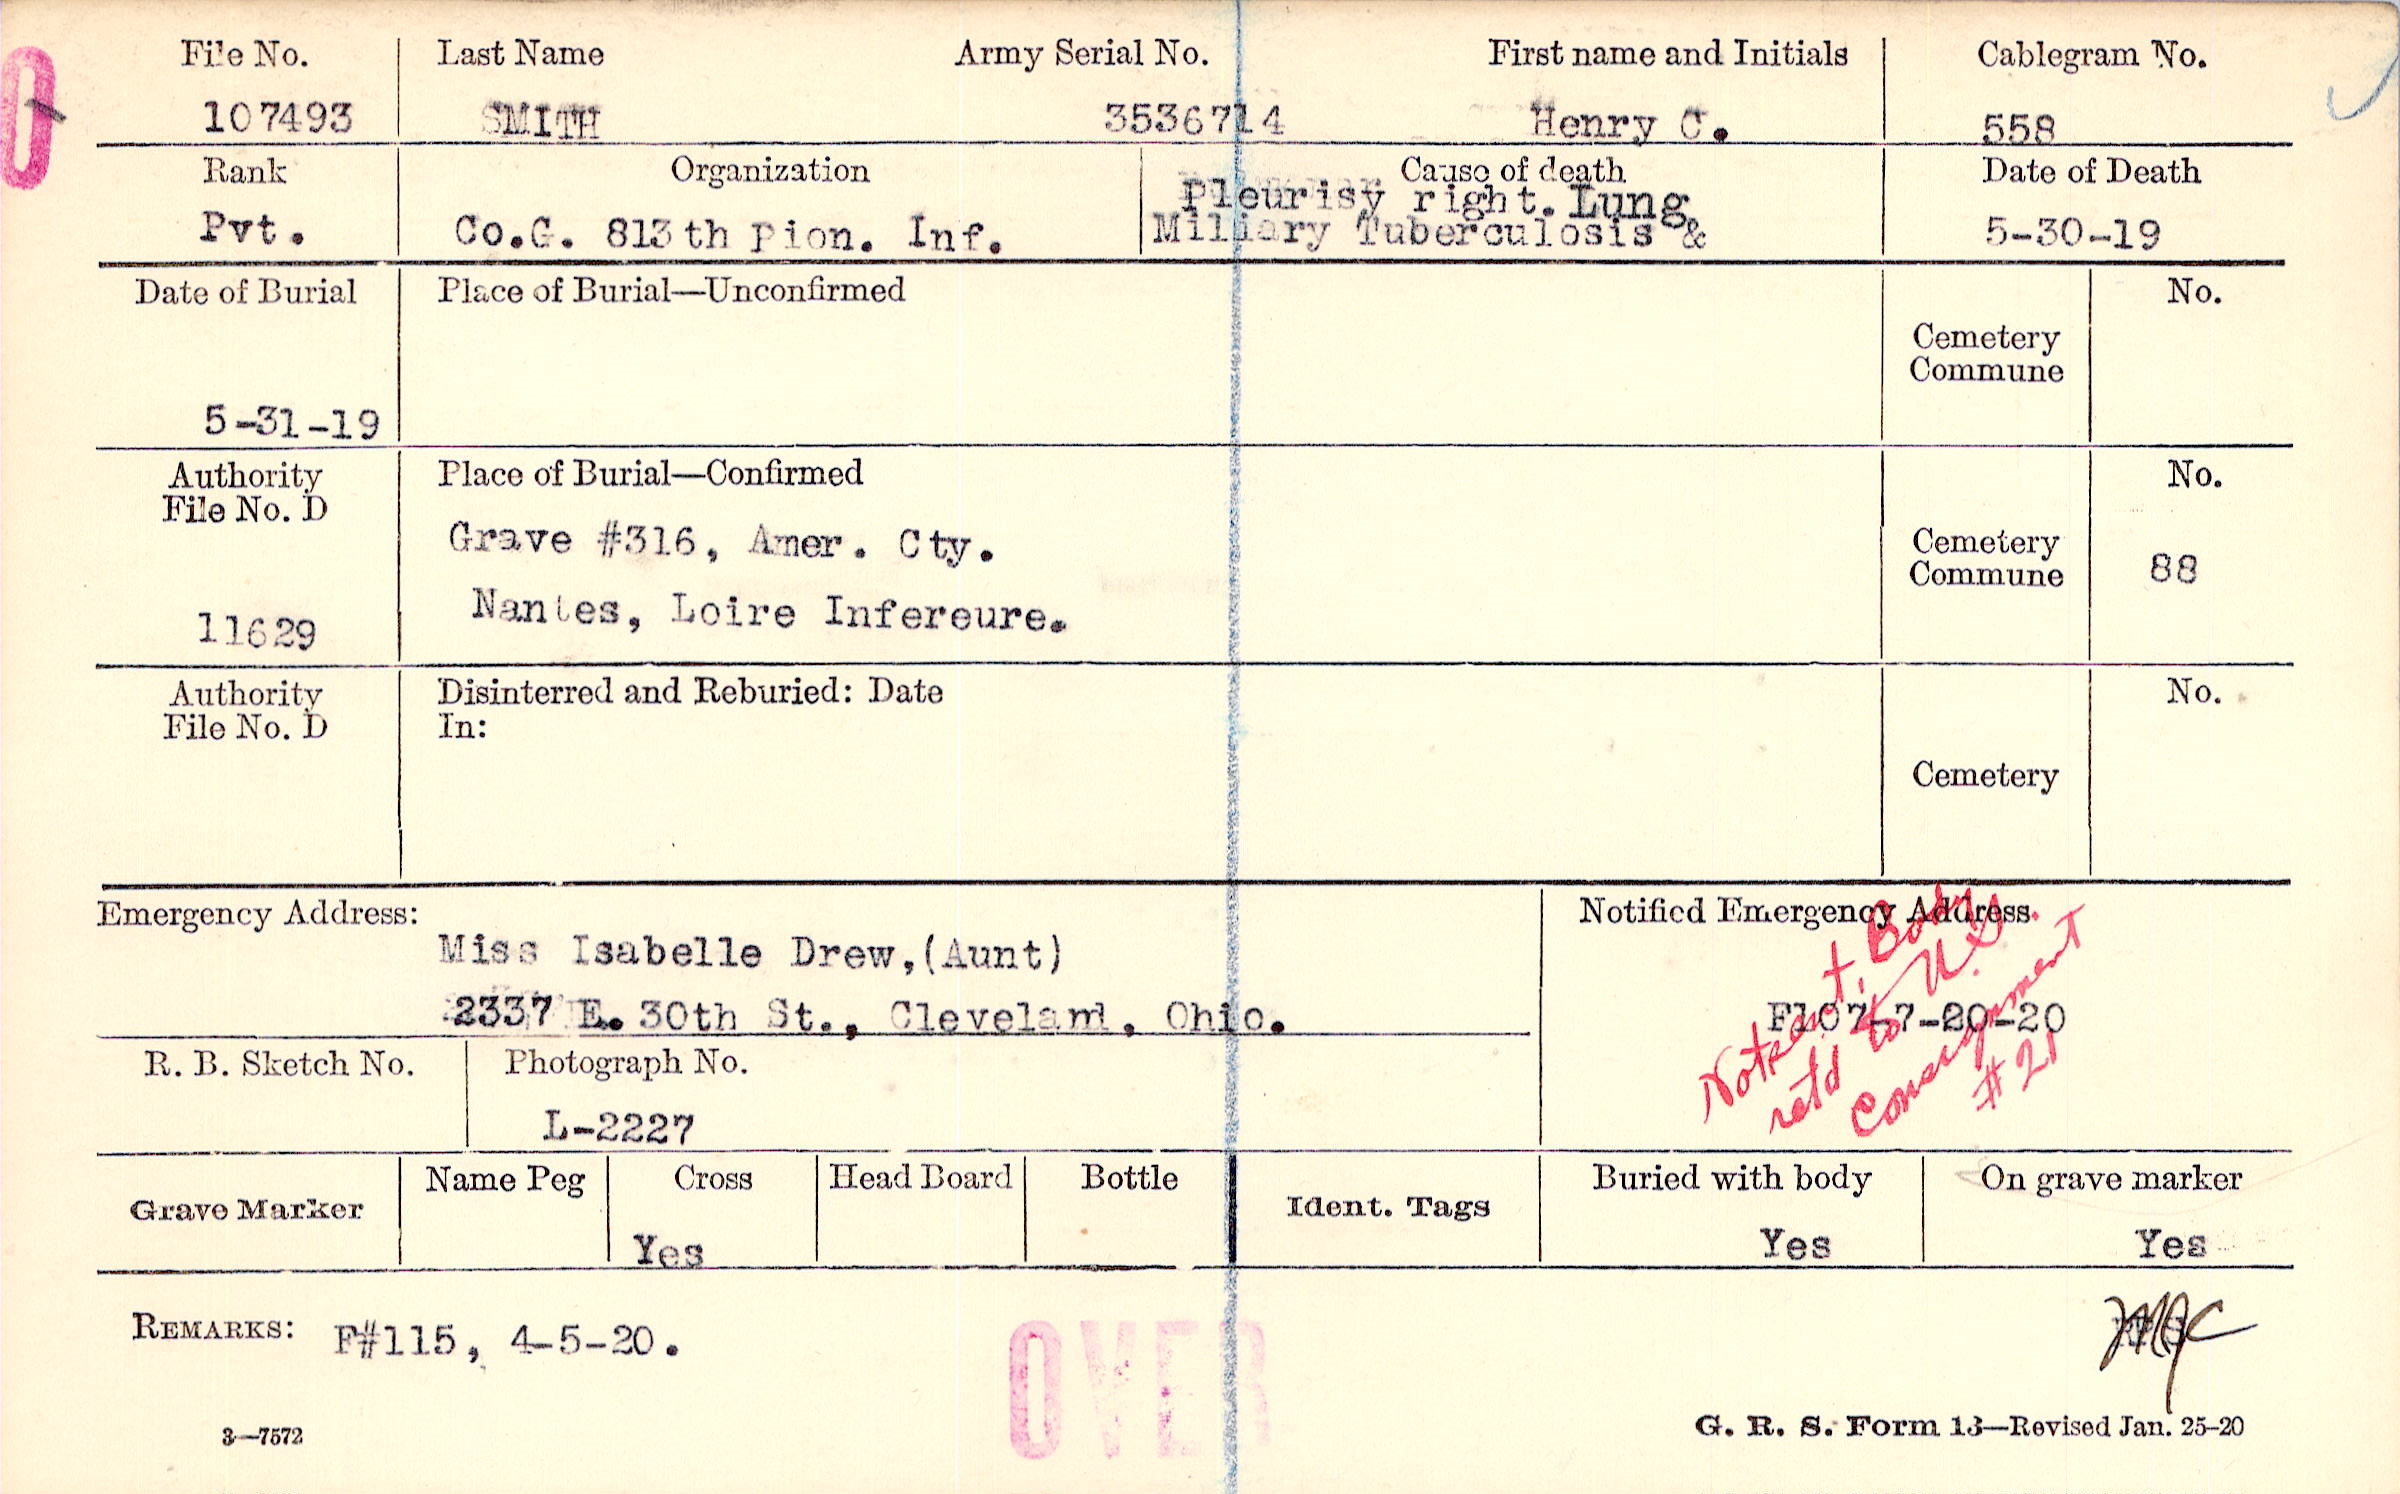 File No. Last Name Army Serial No. First name and Initials Cablegram No.
107493 SMITH 3536714 Henry C. 558
Rank Organization Cause of death Date of Death
Pleurisy right. Lung
Pvt. Co.G. 813th Pion. Inf. Miliary Tuberculosis & 5-30-19
Date of Burial Place of Burial—Unconfirmed No.
Cemetery
Commune
5-31-19
Authority Place of Burial—Confirmed No.
File No. D
Grave #316, Amer. Cty. Cemetery
Commune 88
Nantes, Loire Infereure.
11629
Authority Disinterred and Reburied: Date No.
File No. D In:
Cemetery
Emergency Address: Notified Emergency Address.
Miss Isabelle Drew,(Aunt)
2337 E. 30th St., Cleveland, Ohio. F107-7-20-20
Body
retd to U.S.
Consignment
#21
R. B. Sketch No. Photograph No.
L-2227
Grave Marker Name Peg Cross Head Board Bottle Ident. Tags Buried with body On grave marker
Yes Yes Yes
REMARKS: F#115, 4-5-20.
OVER
3—7572 G. R. S. Form 13—Revised Jan. 25-20